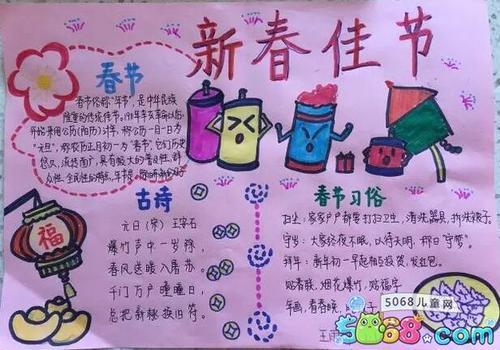 新春佳节
春节
春节俗称“年节”，是中华民族
隆重的传统佳节。
开始采用公历(阳历)计年，称公历一月一日为
“元旦”，称农历正月初一为“春节”，它们历史
悠久，流传面广，具有极大的普及性，群
众性，全民性的特点。
古诗
元日(宋) 王安石
爆竹声中一岁除，
春风送暖入屠苏。
千门万户曈曈日，
总把新桃换旧符。
春节习俗
扫尘：家家户户都要打扫卫生，清洗器具，拆洗被子。
守岁：大家终夜不眠，以待天明，称曰“守岁”
拜年：新年初一早起相互投资，发红包。
贴春联，烟花爆竹，贴福字
年画，看春晚，
子
福
王雨
5068儿童网
5068.com